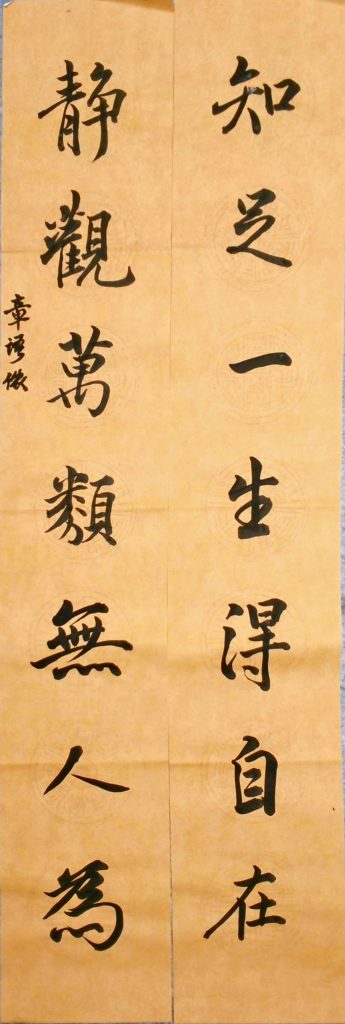 知足一生得自在
静觀萬類無人為
章語微